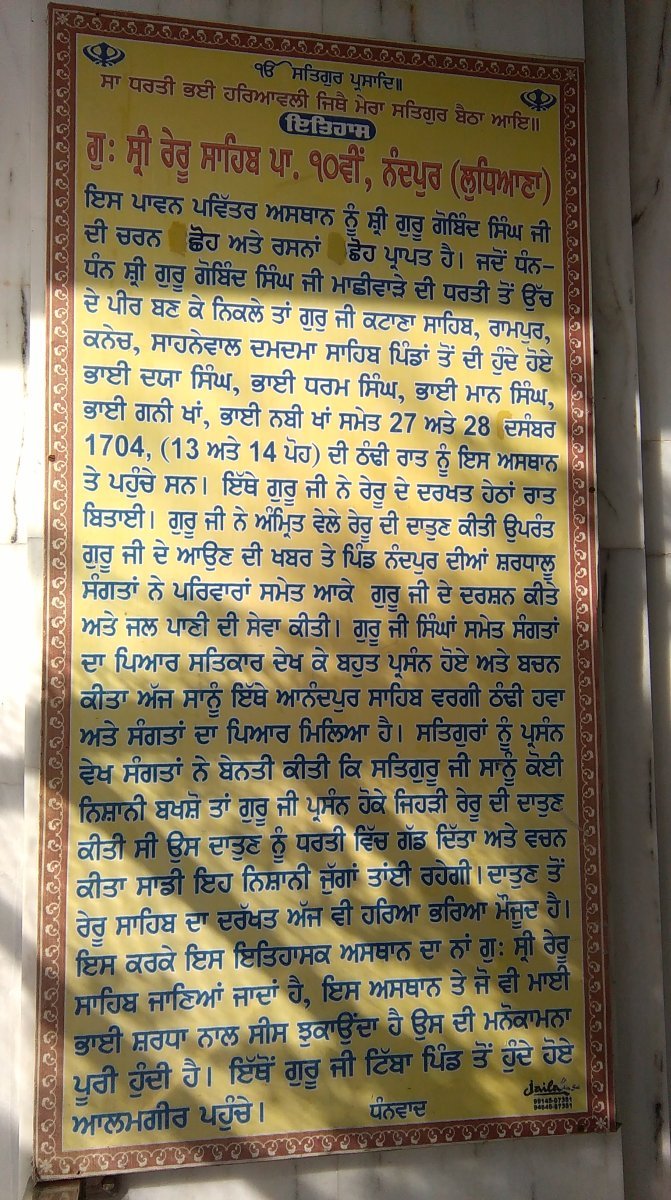 ੴ ਸਤਿਗੁਰ ਪ੍ਰਸਾਦਿ॥
ਸਾ ਧਰਤੀ ਭਈ ਹਰਿਆਵਲੀ ਜਿਥੈ ਮੇਰਾ ਸਤਿਗੁਰ ਬੈਠਾ ਆਇ॥
ਇਤਿਹਾਸ
ਗੁ: ਸ੍ਰੀ ਰੇਰੂ ਸਾਹਿਬ ਪਾ. ੧੦ਵੀਂ, ਨੰਦਪੁਰ (ਲੁਧਿਆਣਾ)
ਇਸ ਪਾਵਨ ਪਵਿੱਤਰ ਅਸਥਾਨ ਨੂੰ ਸ਼੍ਰੀ ਗੁਰੂ ਗੋਬਿੰਦ ਸਿੰਘ ਜੀ
ਦੀ ਚਰਨ ਛੋਹ ਅਤੇ ਰਸਨਾਂ ਛੋਹ ਪ੍ਰਾਪਤ ਹੈ। ਜਦੋਂ ਧੰਨ-
ਧੰਨ ਸ਼੍ਰੀ ਗੁਰੂ ਗੋਬਿੰਦ ਸਿੰਘ ਜੀ ਮਾਛੀਵਾੜੇ ਦੀ ਧਰਤੀ ਤੋਂ ਉੱਚ
ਦੇ ਪੀਰ ਬਣ ਕੇ ਨਿਕਲੇ ਤਾਂ ਗੁਰੂ ਜੀ ਕਟਾਣਾ ਸਾਹਿਬ, ਰਾਮਪੁਰ,
ਕਨੇਚ, ਸਾਹਨੇਵਾਲ ਦਮਦਮਾ ਸਾਹਿਬ ਪਿੰਡਾਂ ਤੋਂ ਦੀ ਹੁੰਦੇ ਹੋਏ
ਭਾਈ ਦਯਾ ਸਿੰਘ, ਭਾਈ ਧਰਮ ਸਿੰਘ, ਭਾਈ ਮਾਨ ਸਿੰਘ,
ਭਾਈ ਗਨੀ ਖਾਂ, ਭਾਈ ਨਬੀ ਖਾਂ ਸਮੇਤ 27 ਅਤੇ 28 ਦਸੰਬਰ
1704, (13 ਅਤੇ 14 ਪੋਹ) ਦੀ ਠੰਢੀ ਰਾਤ ਨੂੰ ਇਸ ਅਸਥਾਨ
ਤੇ ਪਹੁੰਚੇ ਸਨ। ਇੱਥੇ ਗੁਰੂ ਜੀ ਨੇ ਰੇਰੂ ਦੇ ਦਰਖਤ ਹੇਠਾਂ ਰਾਤ
ਬਿਤਾਈ। ਗੁਰੂ ਜੀ ਨੇ ਅੰਮ੍ਰਿਤ ਵੇਲੇ ਰੇਰੂ ਦੀ ਦਾਤੁਣ ਕੀਤੀ ਉਪਰੰਤ
ਗੁਰੂ ਜੀ ਦੇ ਆਉਣ ਦੀ ਖਬਰ ਤੇ ਪਿੰਡ ਨੰਦਪੁਰ ਦੀਆਂ ਸ਼ਰਧਾਲੂ
ਸੰਗਤਾਂ ਨੇ ਪਰਿਵਾਰਾਂ ਸਮੇਤ ਆਕੇ ਗੁਰੂ ਜੀ ਦੇ ਦਰਸ਼ਨ ਕੀਤੇ
ਅਤੇ ਜਲ ਪਾਣੀ ਦੀ ਸੇਵਾ ਕੀਤੀ। ਗੁਰੂ ਜੀ ਸਿੰਘਾਂ ਸਮੇਤ ਸੰਗਤਾਂ
ਦਾ ਪਿਆਰ ਸਤਿਕਾਰ ਦੇਖ ਕੇ ਬਹੁਤ ਪ੍ਰਸੰਨ ਹੋਏ ਅਤੇ ਬਚਨ
ਕੀਤਾ ਅੱਜ ਸਾਨੂੰ ਇੱਥੇ ਆਨੰਦਪੁਰ ਸਾਹਿਬ ਵਰਗੀ ਠੰਢੀ ਹਵਾ
ਅਤੇ ਸੰਗਤਾਂ ਦਾ ਪਿਆਰ ਮਿਲਿਆ ਹੈ। ਸਤਿਗੁਰਾਂ ਨੂੰ ਪ੍ਰਸੰਨ
ਵੇਖ ਸੰਗਤਾਂ ਨੇ ਬੇਨਤੀ ਕੀਤੀ ਕਿ ਸਤਿਗੁਰੂ ਜੀ ਸਾਨੂੰ ਕੋਈ
ਨਿਸ਼ਾਨੀ ਬਖਸ਼ੋ ਤਾਂ ਗੁਰੂ ਜੀ ਪ੍ਰਸੰਨ ਹੋਕੇ ਜਿਹੜੀ ਰੇਰੂ ਦੀ ਦਾਤੁਣ
ਕੀਤੀ ਸੀ ਉਸ ਦਾਤੁਣ ਨੂੰ ਧਰਤੀ ਵਿੱਚ ਗੱਡ ਦਿੱਤਾ ਅਤੇ ਵਚਨ
ਕੀਤਾ ਸਾਡੀ ਇਹ ਨਿਸ਼ਾਨੀ ਜੁੱਗਾਂ ਤਾਂਈ ਰਹੇਗੀ। ਦਾਤੁਣ ਤੋਂ
ਰੇਰੂ ਸਾਹਿਬ ਦਾ ਦਰੱਖਤ ਅੱਜ ਵੀ ਹਰਿਆ ਭਰਿਆ ਮੌਜੂਦ ਹੈ।
ਇਸ ਕਰਕੇ ਇਸ ਇਤਿਹਾਸਕ ਅਸਥਾਨ ਦਾ ਨਾਂ ਗੁ: ਸ੍ਰੀ ਰੇਰੂ
ਸਾਹਿਬ ਜਾਣਿਆਂ ਜਾਦਾਂ ਹੈ, ਇਸ ਅਸਥਾਨ ਤੇ ਜੋ ਵੀ ਮਾਈ
ਭਾਈ ਸ਼ਰਧਾ ਨਾਲ ਸੀਸ ਝੁਕਾਉਂਦਾ ਹੈ ਉਸ ਦੀ ਮਨੋਕਾਮਨਾ
ਪੂਰੀ ਹੁੰਦੀ ਹੈ। ਇੱਥੋਂ ਗੁਰੂ ਜੀ ਟਿੱਬਾ ਪਿੰਡ ਤੋਂ ਹੁੰਦੇ ਹੋਏ
ਆਲਮਗੀਰ ਪਹੁੰਚੇ। ਧੰਨਵਾਦ